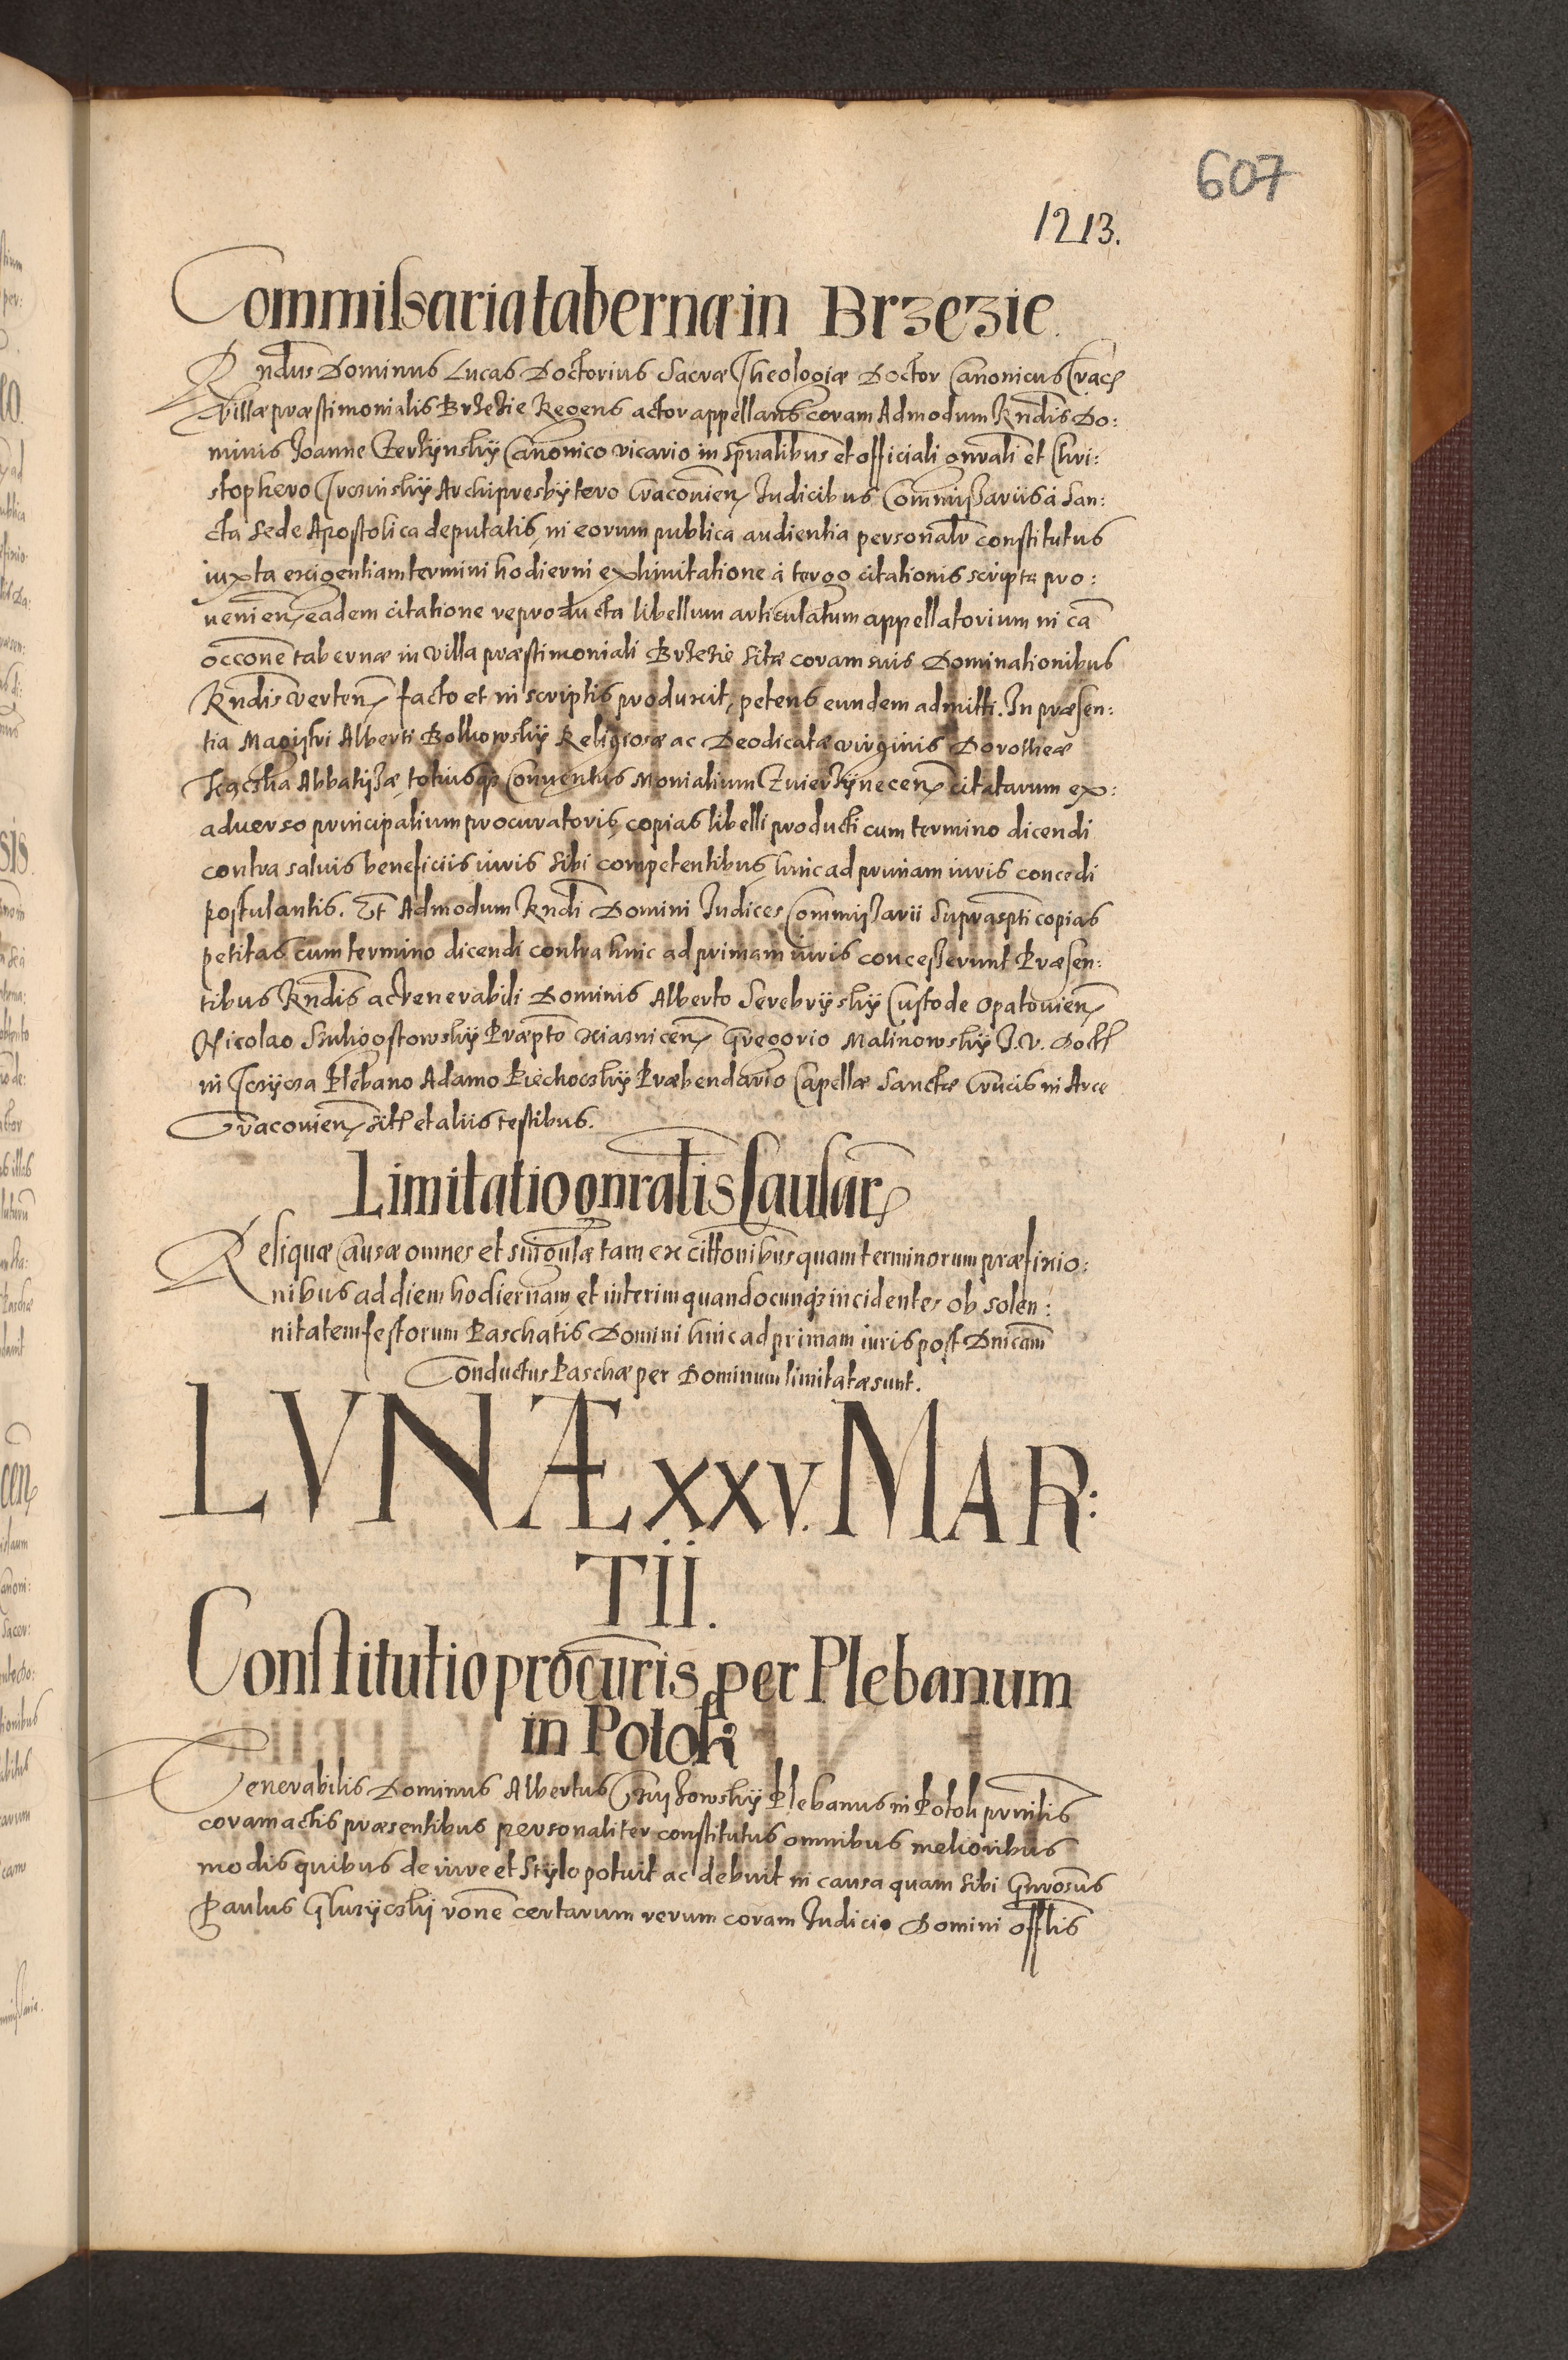 607
1213.
Commissaria tabernæ in Brzezie.
Rndus Dominus Lucas Doctorius Sacræ Theologiæ Doctor Canonicus Crac
Villæ præstimonialis Brzezie Regens actor appellans coram Admodum Rndis Do:
minis Joanne Canonico vicario in spũalibus et officiali gñrali et Chri:
stophero Archipresbytero Cracovien Judicibus Commissariis à San:
cta Sede Apostolica deputatis, in eorum publica audientia personalr constitutus
iuxta exigentiam termini hodierni ex à tergo citationis scriptæ pro:
venien, eadem citatione reproducta libellum articulatum appellatorium in cã
occõne tabernæ in villa præstimoniali Brzezie sitæ coram suis Dominationibus
Rndis verten, facto et in scriptis produxit, petens eundem admitti. In præsen:
tia Magistri Alberti Religiosæ ac Deodicatæ virginis Dorotheæ
Abbatissæ, totiusq3 Conventus Monialium Zvierzynecen citatarum ex:
adverso principalium procuratoris, copias libelli producti cum termino dicendi
contra salvis beneficiis iuris sibi competentibus, hinc ad primam iuris concedi
postulantis. Et Admodum Rndi Domini Judices Commissarii suprascpti copias
petitas cum termino dicendi contra hinc ad primam iuris concesserunt Præsen:
tibus Rndis ac Venerabili Dominis Alberto Serebryskÿ Custode Opatovien
Nicolao Præpto Gregorio Malinowskÿ J. V. Doct
in Plebano Adamo Piechockÿ Præbendario Capellæ Sanctæ Crucis in Arce
Cracovien et aliis testibus.
Limitatio gnralis Causar
Reliquæ Causæ omnes et singulæ tam ex citt̃onibus quam terminorum præfixio:
nibus ad diem hodiernam, et interim quandocunq3 incidentes ob solen:
nitatem festorum Paschatis Domini hinc ad primam iuris post Dnicam
Conductus Paschæ per Dominum limitatæ sunt.
LVNÆ XXV. MAR:
TII.
Constitutio procuris per Plebanum
in Potok
Venerabilis Dominus Albertus Plebanus in Potok
coram actis præsentibus personaliter constitutus omnibus melioribus
modis quibus de iure et stylo potuit ac debuit in causa quam sibi Gnrosus
Paulus rõne certarum rerum coram Judicio Domini offlis